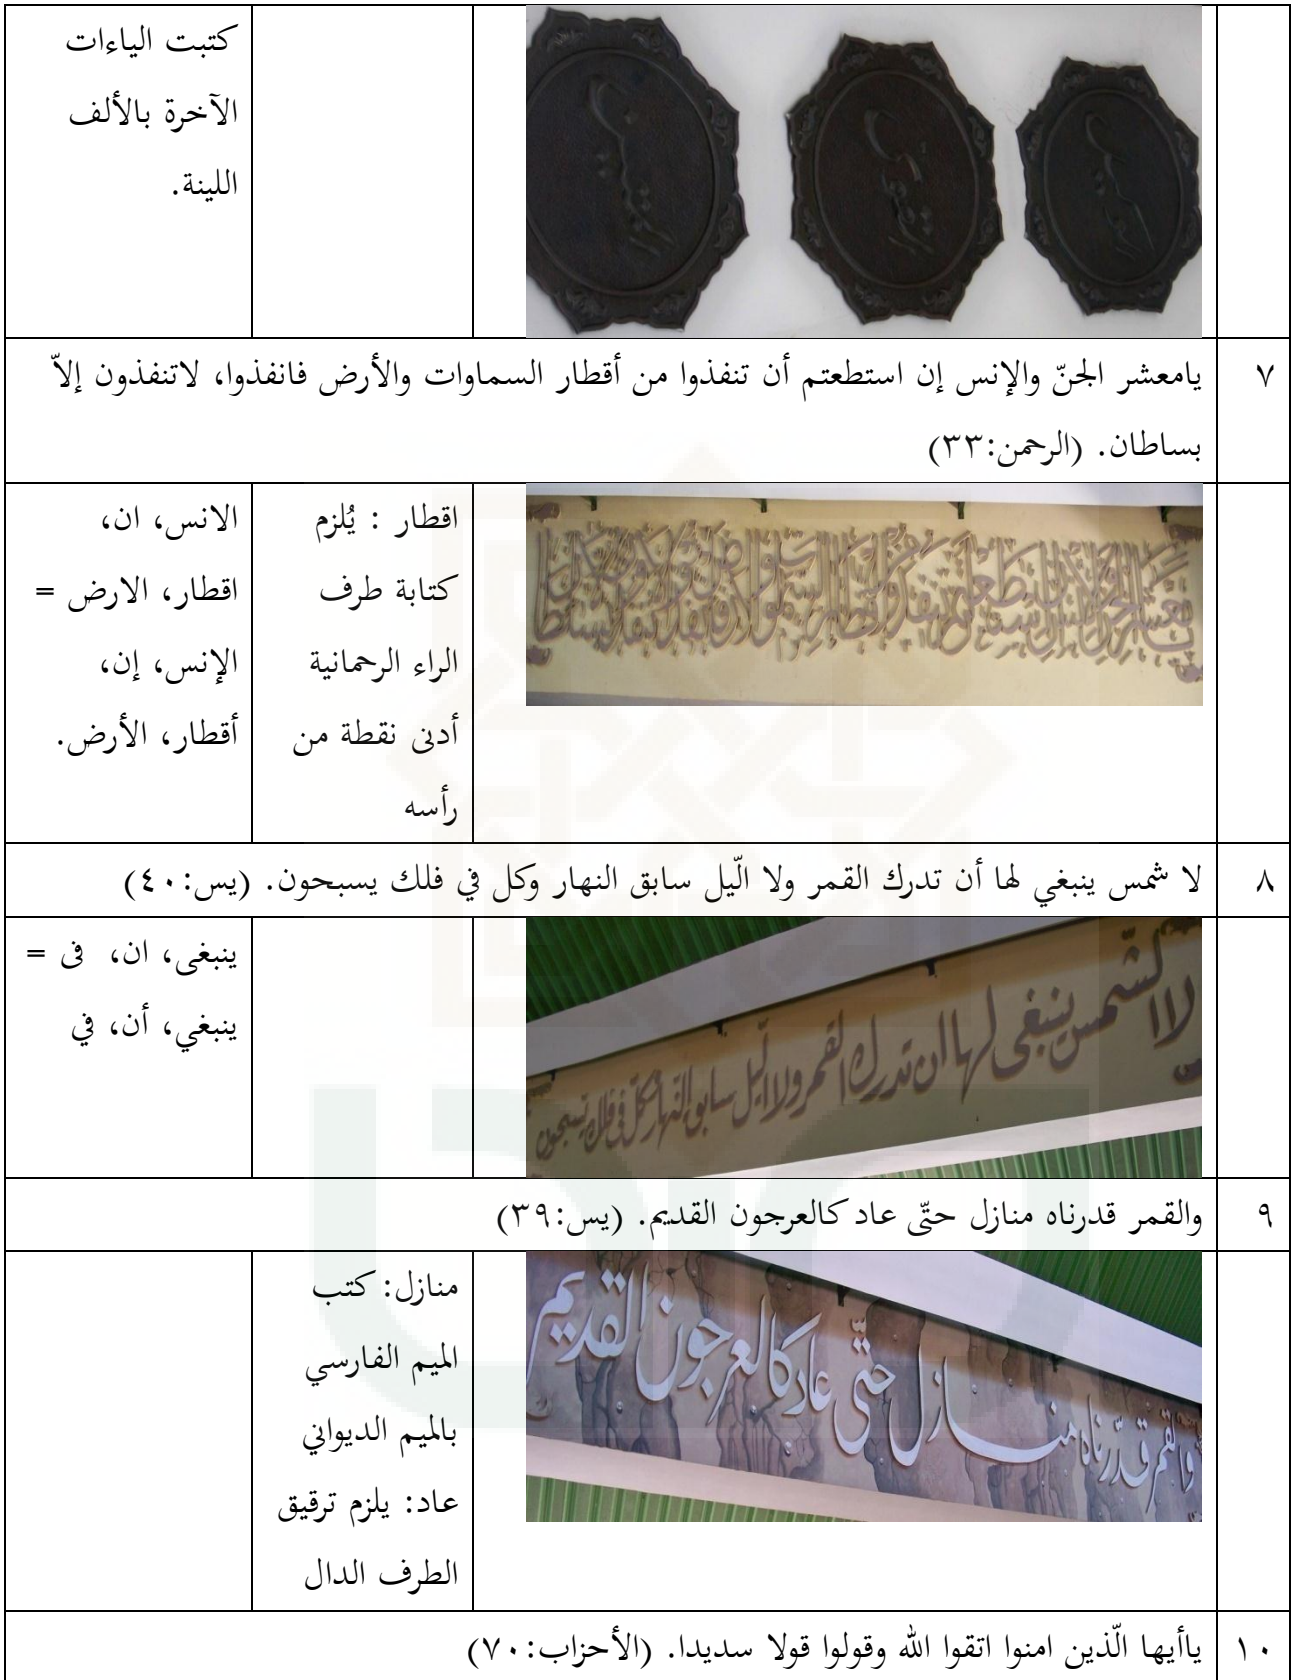 كتبت الياءات
الآخرة بالألف
اللينة.
٧ يامعشر الجنّ والإنس إن استطعتم أن تنفذوا من أقطار السماوات والأرض فانفذوا، لاتنفذون إلاّ
بساطان. (الرحمن:٣٣)
اقطار : يُلزم
كتابة طرف
الراء الرحمانية
أدنى نقطة من
رأسه
الانس، ان،
اقطار، الارض =
الإنس، إن،
أقطار، الأرض.
٨ لا شمس ينبغي لها أن تدرك القمر ولا الّيل سابق النهار وكل في فلك يسبحون. (يس:٤٠)
لا الشّمس ينبغى لها ان تدرك القمر ولا الّيل سابق النّهار وكلّ فى فلك يسبحون
ينبغى، ان، فى =
ينبغي، أن، في
٩ والقمر قدرناه منازل حتّى عاد كالعرجون القديم. (يس:٣٩)
والقمر قدّرناه منازل حتّى عاد كالعرجون القديم
منازل: كتب
الميم الفارسي
بالميم الديواني
عاد: يلزم ترقيق
الطرف الدال
١٠ ياأيها الّذين امنوا اتقوا الله وقولوا قولا سديدا. (الأحزاب:٧٠)